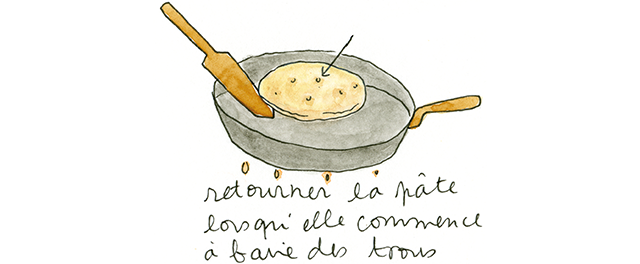 retourner la pâte
lorsqu'elle commence
à faire des trous